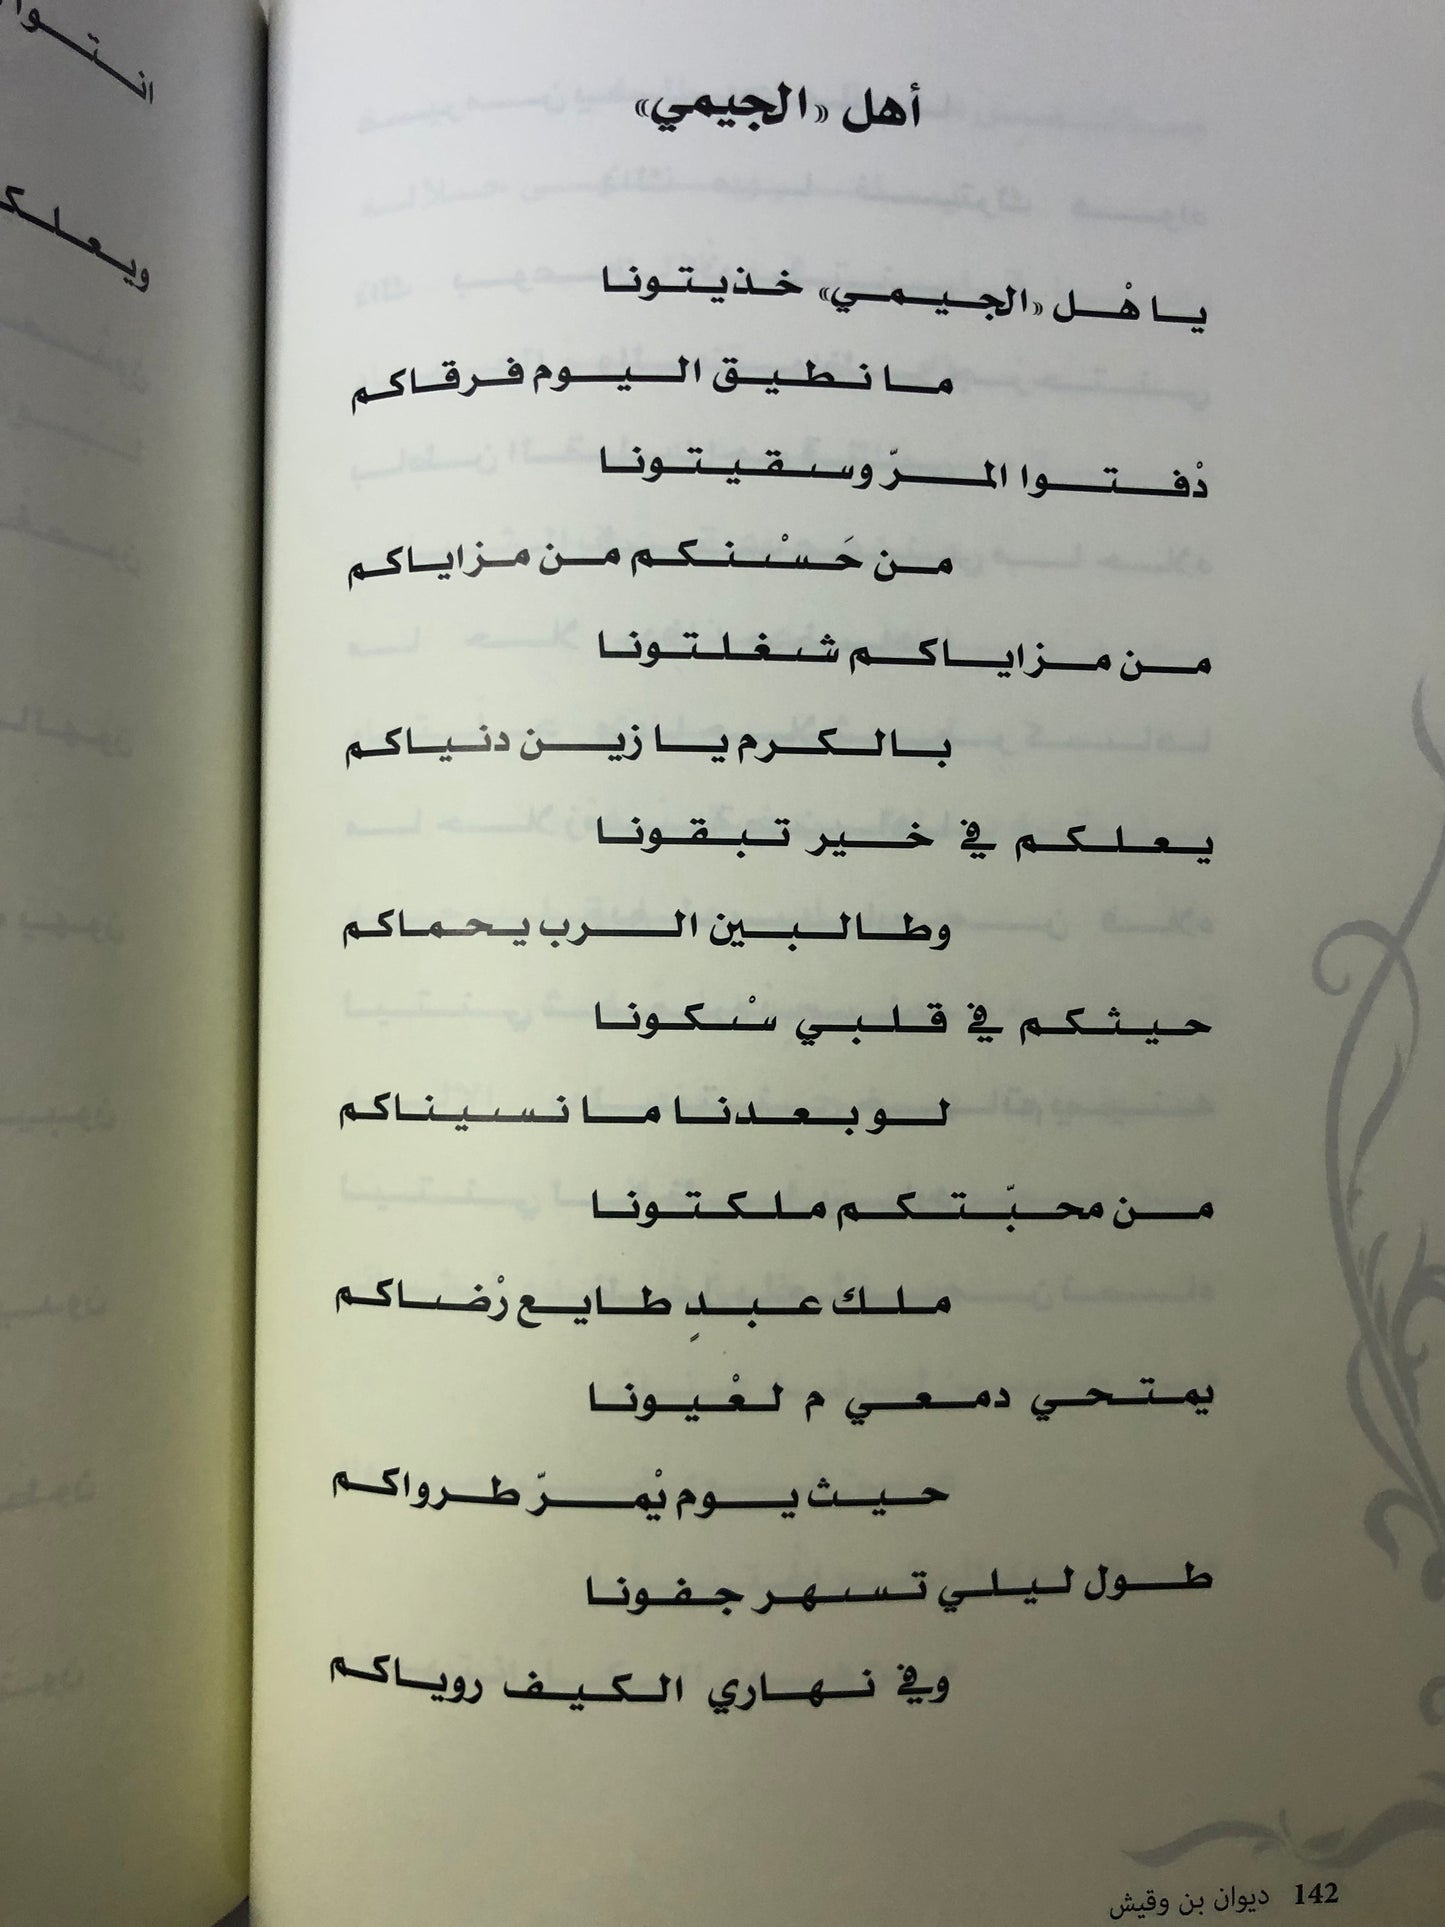 أهل «الجيمي»
يا هْل «الجيمي» خذيتونا
ما نطيق اليوم فرقاكم
دْفتوا المرّ وسقيتونا
من حَسْنكم من مزاياكم
من مزاياكم شغلتونا
بالكرم يا زين دنياكم
يعلكم في خير تبقونا
وطالبين الرب يحماكم
حيثكم في قلبي سْكونا
لو بعدنا ما نسيناكم
من محبّتكم ملكتونا
ملك عبدٍ طايع رْضاكم
يمتحي دمعي م لعْيونا
حيث يوم يْمرّ طرواكم
طول ليلي تسهر جفونا
وفي نهاري الكيف روياكم
142 ديوان بن وقيش